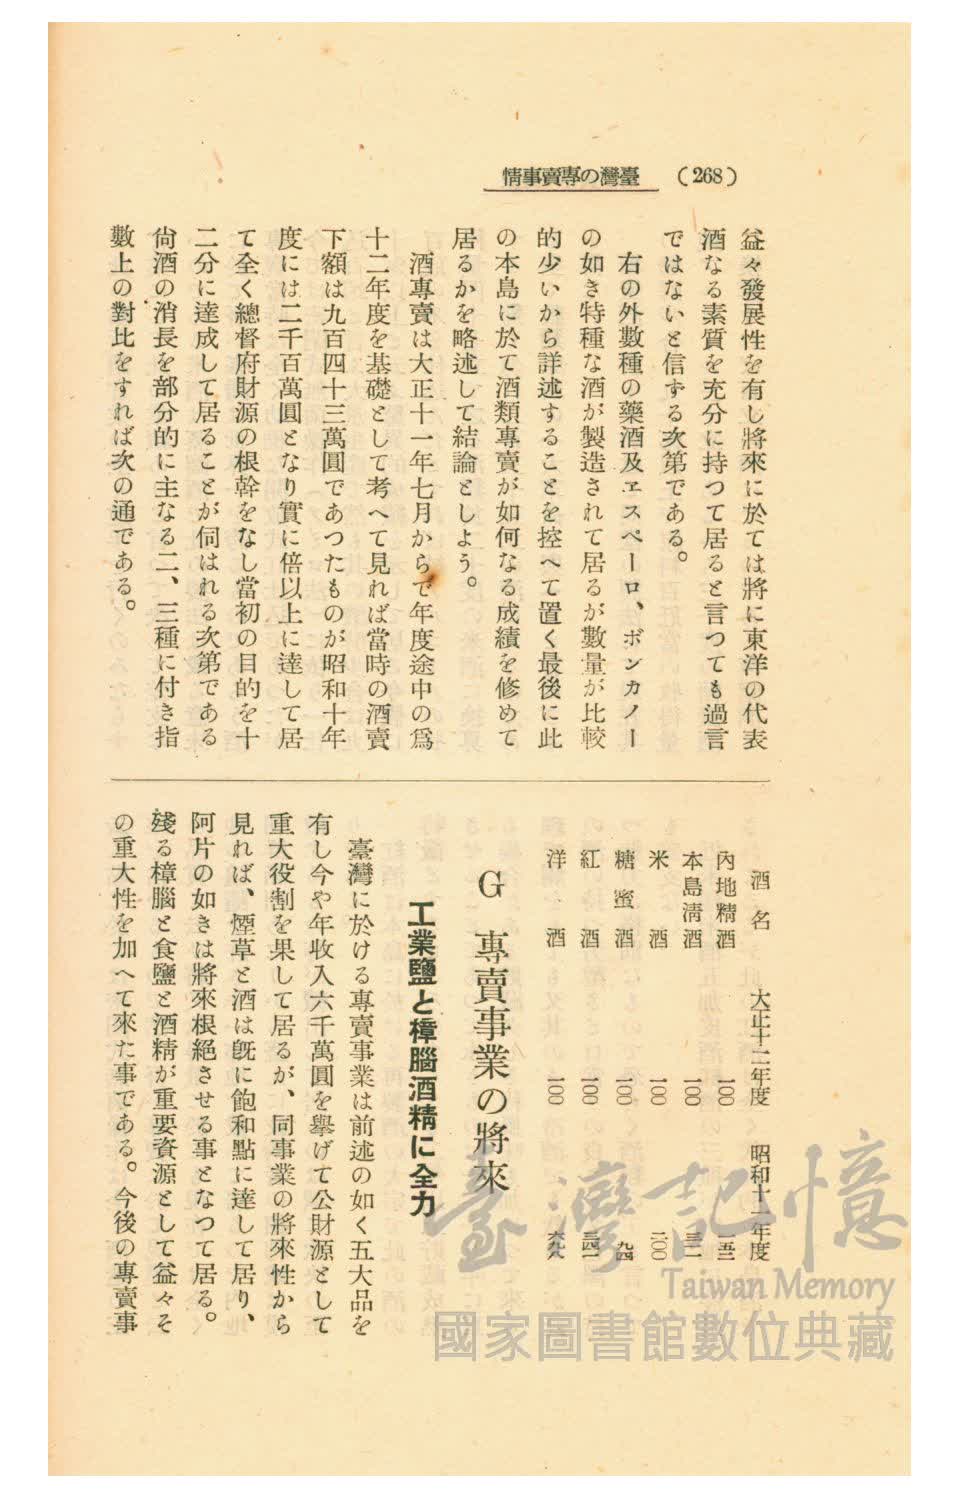 (268) 臺灣の專賣事情
益々發展性を有し將來に於ては將に東洋の代表
酒なる素質を充分に持つて居ると言つても過言
ではないと信ずる次第である。
右の外數種の藥酒及ヱスペーロ、ボンカノー
の如き特種な酒が製造されて居るが數量が比較
的少いから詳述することを控へて置く最後に此
の本島に於て酒類專賣が如何なる成績を修めて
居るかを略述して結論としよう。
酒專賣は大正十一年七月からで年度途中の爲
十二年度を基礎として考へて見れば當時の酒賣
下額は九百四十三萬圓であつたものが昭和十年
度には二千百萬圓となり實に倍以上に達して居
て全く總督府財源の根幹をなし當初の目的を十
二分に達成して居ることが伺はれる次第である
尙酒の消長を部分的に主なる二、三種に付き指
數上の對比をすれば次の通である。
酒名 大正十二年度 昭和十一年度
內地精酒 一〇〇 一五二
本島淸酒 一〇〇 三二一
米酒 一〇〇 二〇〇
糖蜜酒 一〇〇 九四
紅酒 一〇〇
洋酒 一〇〇 六九八
G 專賣事業の將來
工業鹽と樟腦酒精に全力
臺灣に於ける專賣事業は前述の如く五大品を
有し今や年收入六千萬圓を擧げて公財源として
重大役割を果して居るが、同事業の將來性から
見れば、煙草と酒は旣に飽和點に達して居り、
阿片の如きは將來根絕させる事となつて居る。
殘る樟腦と食鹽と酒精が重要資源として益々そ
の重大性を加へて來た事である。今後の專賣事
臺灣記憶
Taiwan Memory
國家圖書館數位典藏